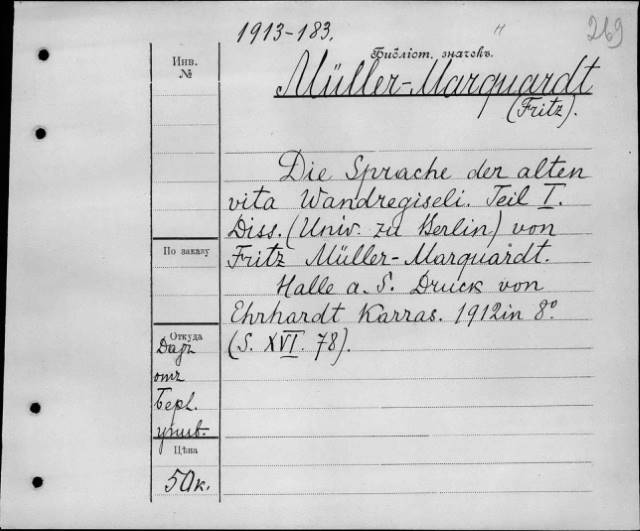 1913-183.
269
Инв.
№
Библіот. значекъ.
Müller-Marquardt
(Fritz).
Die Sprache der alten
vita Wandregiseli. Teil I.
Diss. (Univ. zu Berlin) von
Fritz Müller-Marquardt.
Halle a. S. Druck von
Ehrhardt Karras. 1912 in 8°.
(S. XVI. 78).
По заказу
Откуда
Даръ
отъ
Берл.
унив.
Цѣна
50к.